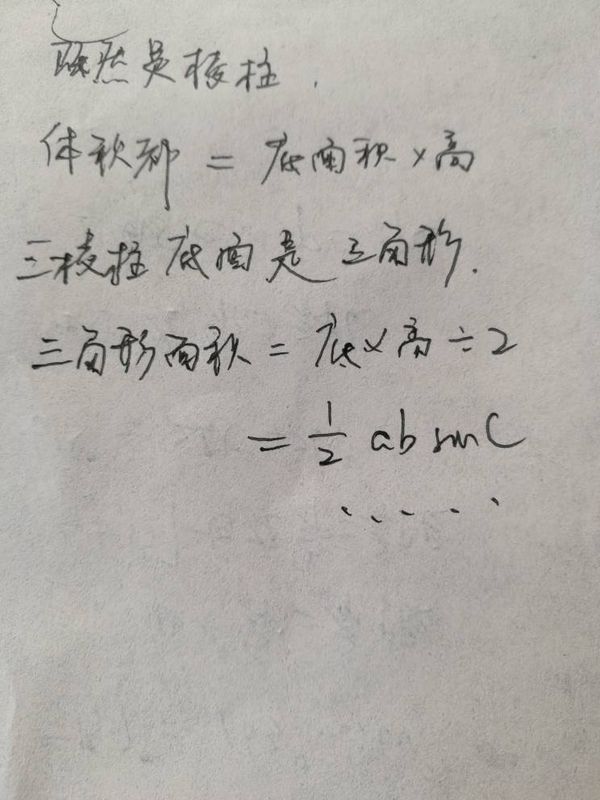 既然是棱柱.
体积都 = 底面积×高
三棱柱底面是三角形.
三角形面积 = 底×高÷2
= 1/2 ab sin C
.....